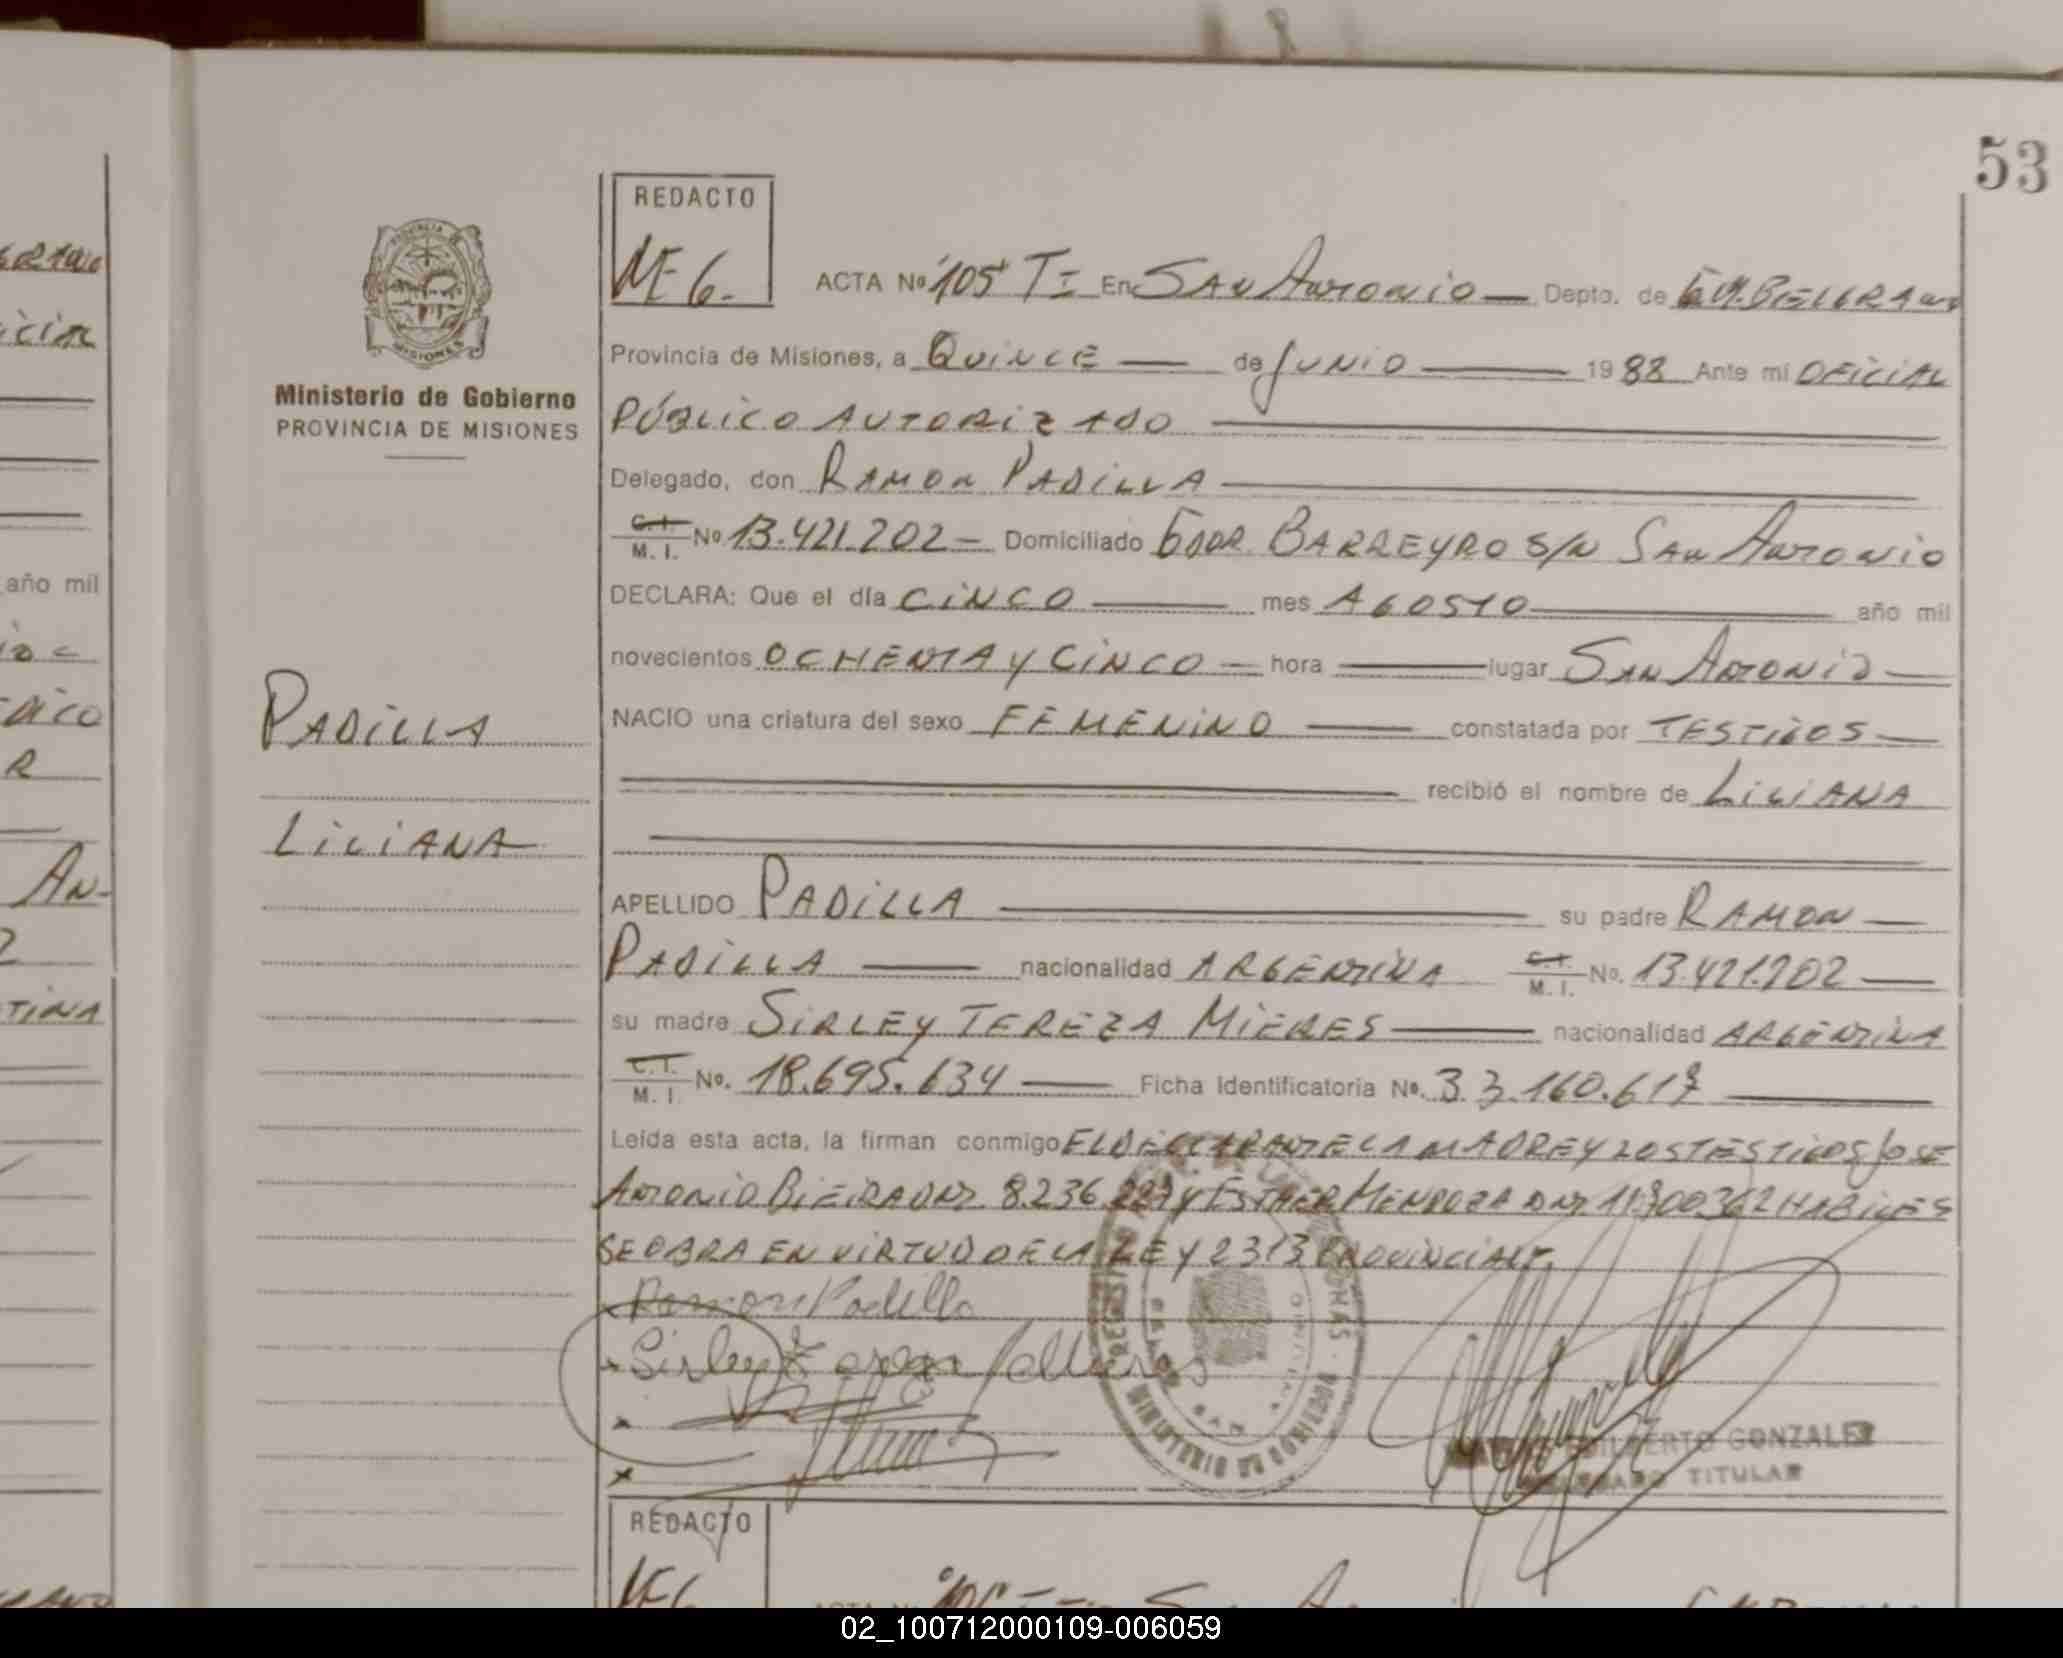 53
REDACTO
ACTA No 105 TI En SAN ANTONIO Depto. de GM. BELGRANO
Provincia de Misiones, a QUINCE de JUNIO 1988 Ante mi OFICIAL
PÚBLICO AUTORIZADO
Ministerio de Gobierno
PROVINCIA DE MISIONES
Delegado, don RAMON PADILLA
C.I. M. I. No 13.421.202 Domiciliado GDOR. BARREYRO S/N SAN ANTONIO
DECLARA: Que el día CINCO mes AGOSTO año mil
novecientos OCHENTA Y CINCO hora lugar SAN ANTONIO
PADILLA
NACIO una criatura del sexo FEMENINO constatada por TESTIGOS
recibió el nombre de LILIANA
LILIANA
APELLIDO PADILLA su padre RAMON
PADILLA nacionalidad ARGENTINA C.I. M. I. No. 13.421.202
su madre SIRLEY TEREZA MIERES nacionalidad ARGENTINA
C.I. M. I. No. 18.695.634 Ficha Identificatoria No. 33.160.617
Leída esta acta, la firman conmigo EL DECLARANTE LA MADRE Y LOS TESTIGOS JOSE
ANTONIO BIEIRA DNI 8.236.227 Y ESTHER MENDOZA DNI 11.300362 HABILES
SE OBRA EN VIRTUD DE LA LEY 2313 PROVINCIAL
Ramon Padilla
Sirley
EDILBERTO GONZALEZ
DELEGADO TITULAR
MINISTERIO DE GOBIERNO
REDACTO
año mil
02_100712000109-006059